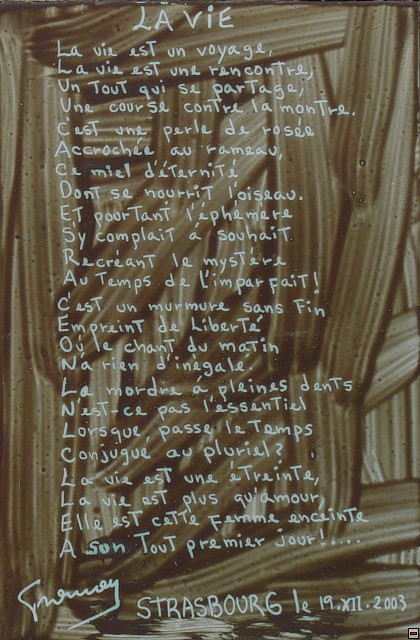 LA VIE
La vie est un voyage,
La vie est une rencontre,
Un Tout qui se partage,
Une course contre la montre.
C'est une perle de rosée
Accrochée au rameau,
Ce miel d'éternité
Dont se nourrit l'oiseau.
Et pourtant l'éphémère
S'y complait à souhait
Recréant le mystère
Au Temps de l'imparfait!
C'est un murmure sans fin
Empreint de Liberté
Où le chant du matin
N'a rien d'inégalé.
La mordre à pleines dents
N'est-ce pas l'essentiel
Lorsque passe le Temps
Conjugué au pluriel?
La vie est une étreinte,
La vie est plus qu'amour,
Elle est cette femme enceinte
A son Tout premier jour!....
STRASBOURG le 19.XII.2003